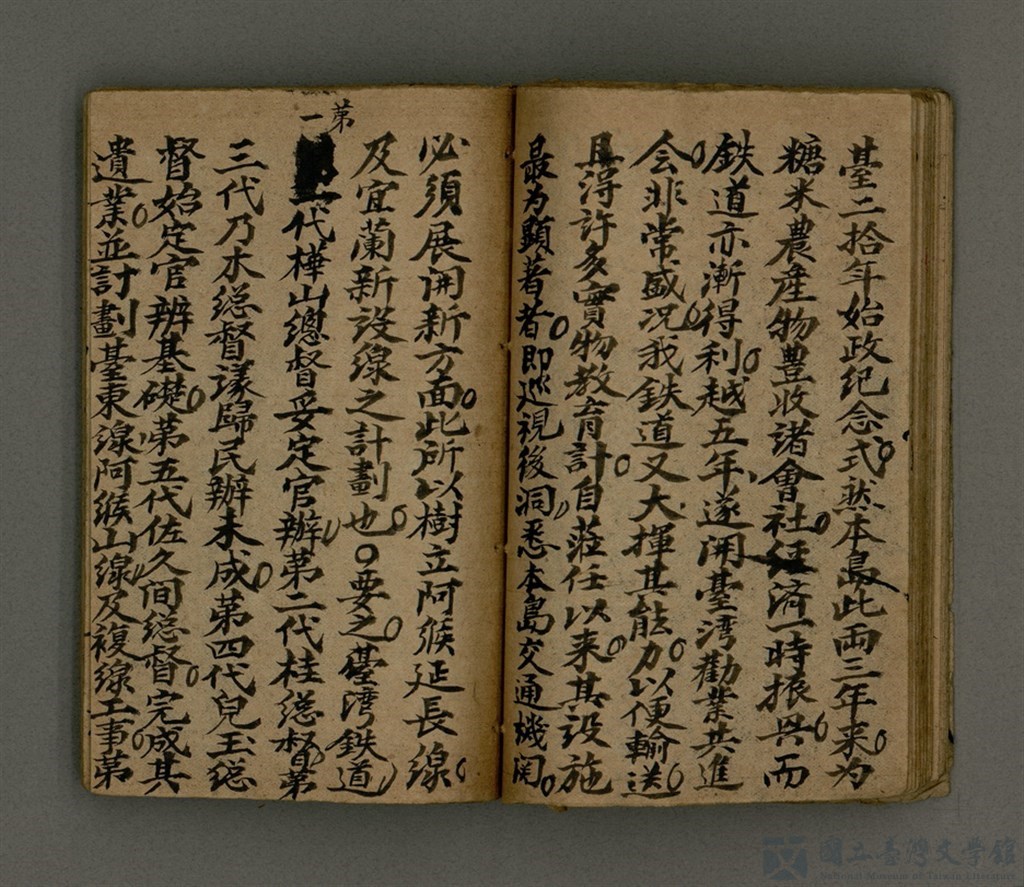 臺二拾年始政紀念式。然本島此両三年来。为
糖米農産物豊收諸會社。经済一時振兴。而
鉄道亦漸得利。越五年、遂開臺湾勸業共進
会。非常盛况。我鉄道又大揮其能力。以便輸送。
且淂許多實物教育計。自莊任以来。其設施
最为顕著者。即巡視後洞悉本島交通機関。
必須展開新方面。此所以樹立阿緱延長線。
及宜蘭新設線之計劃也。〇要之。臺湾鉄道、
第一代樺山總督妥定官辦、第二代桂総督、第
三代乃木総督議歸民辦未成。第四代兒玉総
督始定官辦基礎。第五代佐久间総督。完成其
遺業。並計劃臺東線阿緱山線、及複線工事。第
國立臺灣文學館
National Museum of Taiwan Literature